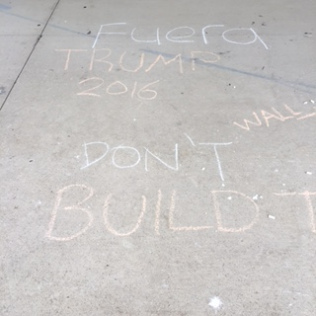 Fuera
TRUMP
2016
WALL
DON'T
BUILD T